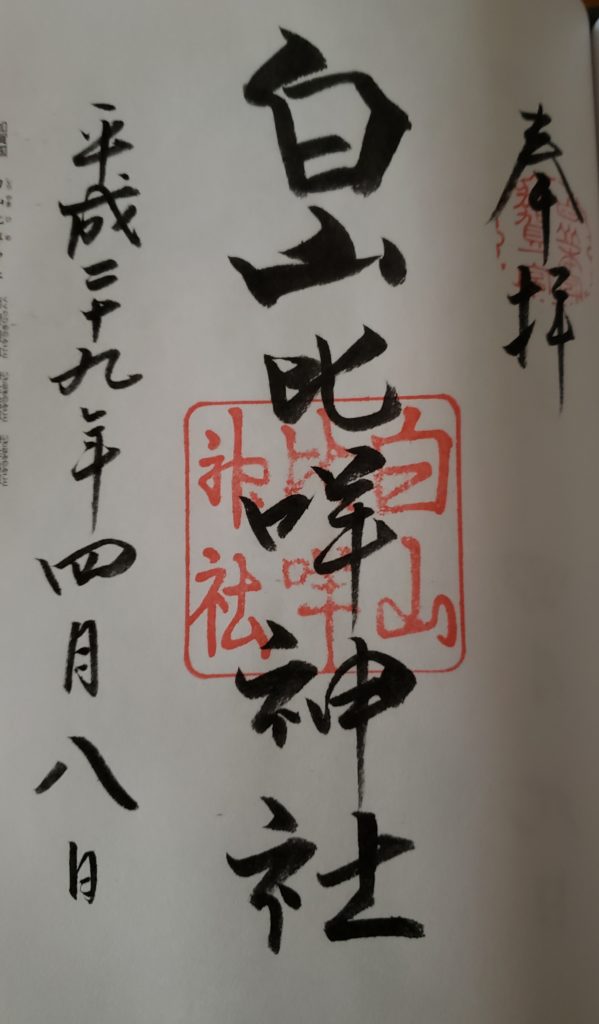 奉拝
白山比咩神社
白山
比咩
神社
平成二十九年四月八日